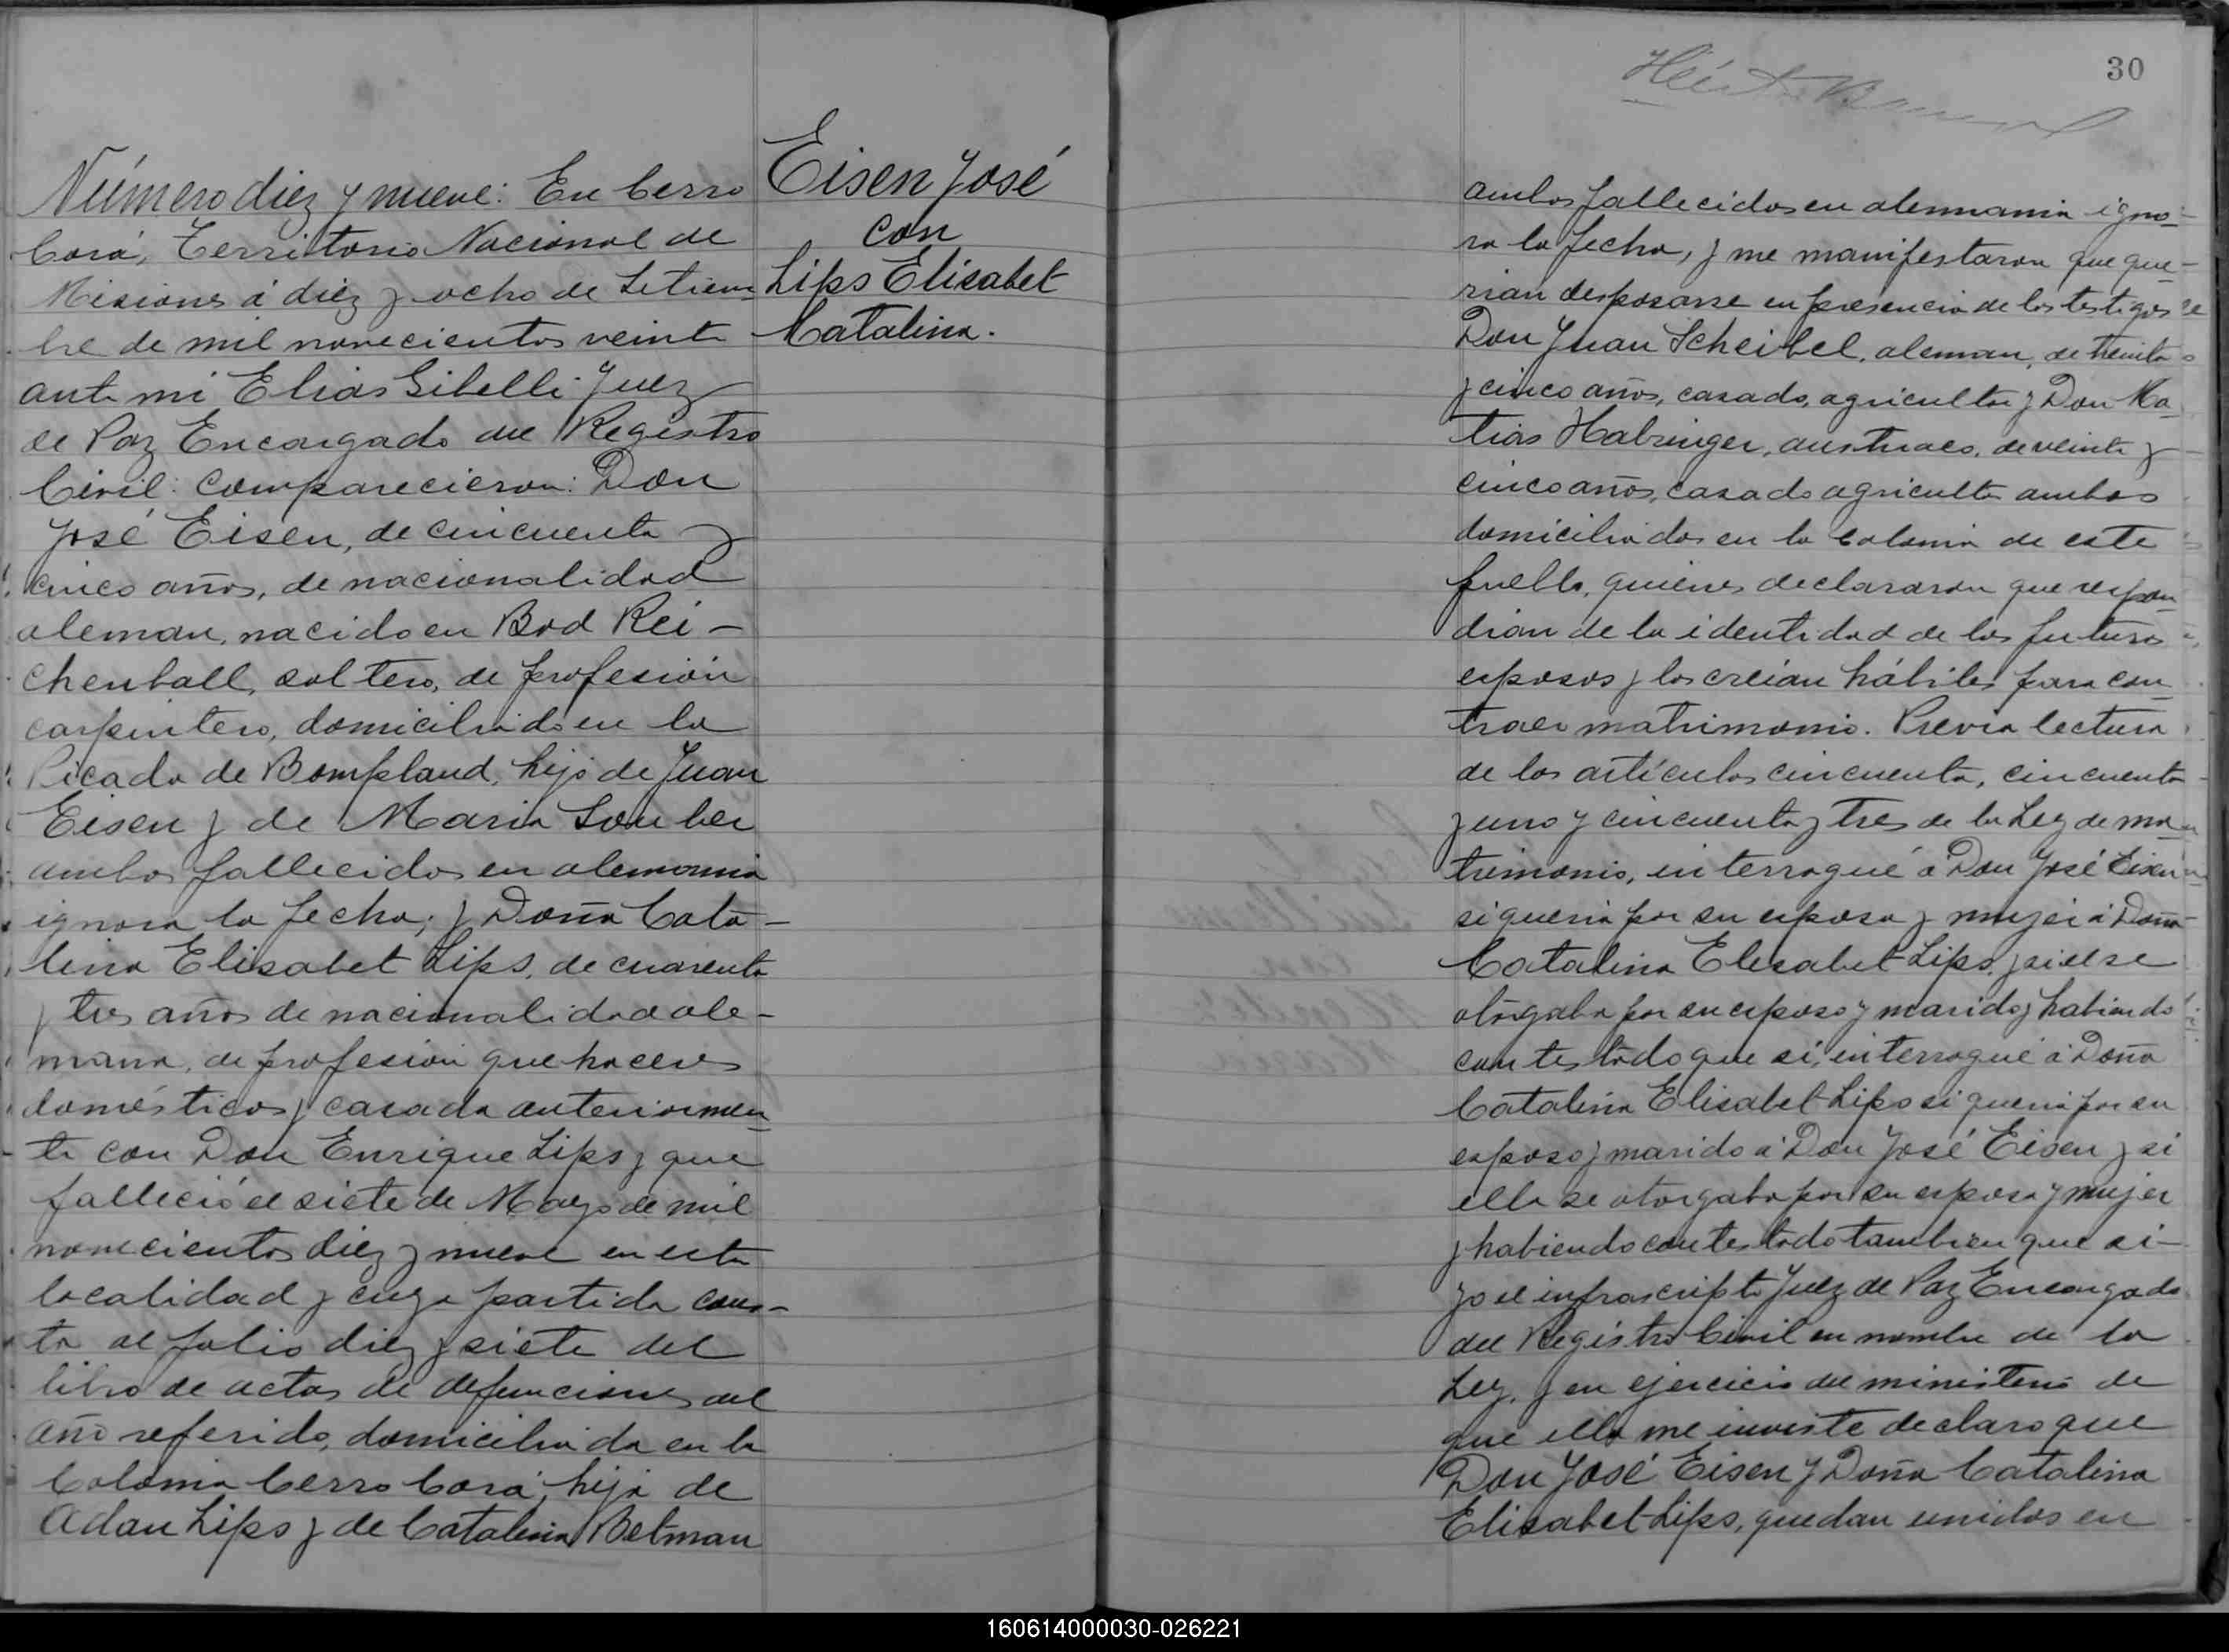 Número diez y nueve: En Cerro
Corá, Territorio Nacional de
Misiones á diez y ocho de Setiem-
bre de mil novecientos veinte
ante mi Elias Gibelli Juez
de Paz Encargado del Registro
Civil: comparecieron: Don
José Eisen, de cincuenta y
cinco años, de nacionalidad
aleman, nacido en Bad Rei-
chenhall, soltero, de profesión
carpintero, domiciliado en la
Picada de Bompland, hijo de Juan
Eisen y de Maria
ambos fallecidos en alemania
ignora la fecha; y Doña Cata-
lina Elisabet Lips, de cuarenta
y tres años de nacionalidad ale-
mana, de profesión quehaceres
domésticos, casada anteriormen-
te con Don Enrique Lips y que
falleció el siete de Mayo de mil
novecientos diez y nueve en esta
localidad y cuya partida cons-
ta al folio diez y siete del
libro de actas de defunciones del
año referido, domiciliada en la
Colonia Cerro Corá, hija de
Adan Lips y de Catalina Betman
Eisen José
con
Lips Elisabet
Catalina.
30
ambos fallecidos en alemania igno-
ra la fecha, y me manifestaron que que-
rian desposarse en presencia de los testigos
Don Juan Scheibel, aleman, de treinta
y cinco años, casado, agricultor y Don Ma
tias Habringer, austriaco, de veinte y
cinco años, casado agricultor ambos
domiciliados en la Colonia de este
pueblo, quienes declararon que respon-
dian de la identidad de los futuros
esposos y los creian hábiles para con-
traer matrimonio. Previa lectura
de los artículos cincuenta, cincuenta
y uno y cincuenta y tres de la Ley de ma-
trimonio, interrogué á Don José Eisen
si queria por su esposa y mujer á Doña
Catalina Elisabet Lips, y si el se
otorgaba por su esposo y marido y habiendo
contestado que si, interrogué á Doña
Catalina Elisabet Lips si queria por su
esposo y marido á Don José Eisen y si
ella se otorgaba por su esposa y mujer
y habiendo contestado tambien que si-
yo el infrascripto Juez de Paz Encargado
del Registro Civil en nombre de la
Ley, y en ejercicio del ministerio de
que ella me inviste declaro que
Don José Eisen y Doña Catalina
Elisabet Lips, quedan unidos en
160614000030-026221